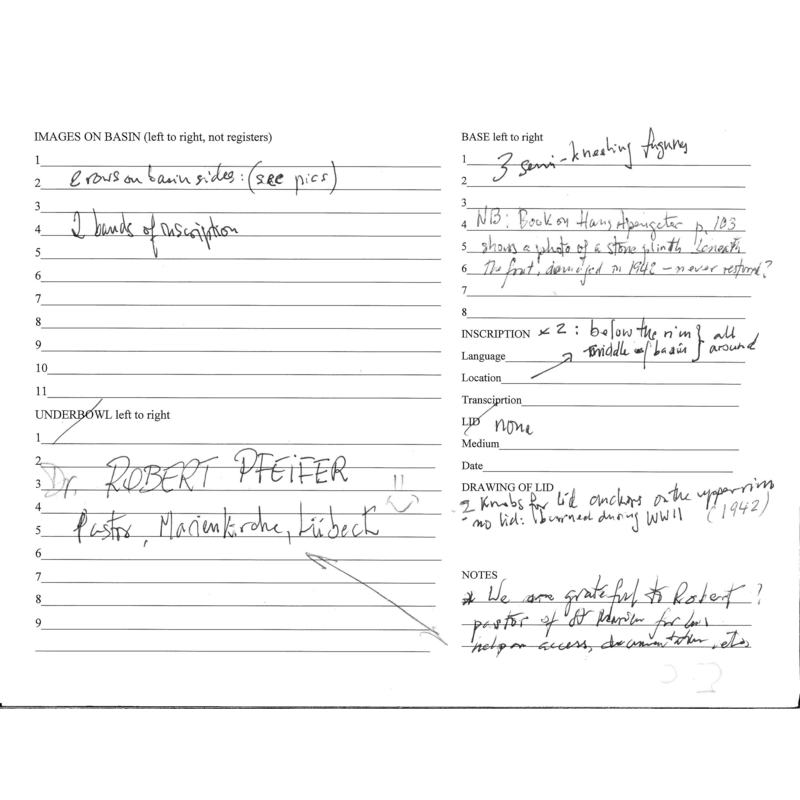 IMAGES ON BASIN (left to right, not registers)
1
2 2 rows on basin sides: (see pics)
3
4 2 bands of inscription
5
6
7
8
9
10
11
UNDERBOWL left to right
1
2
3 Dr. ROBERT PFEIFER
4
5 Pastor, Marienkirche, Lübeck
6
7
8
9
BASE left to right
1 3 semi-kneeling figures
2
3
4 NB: Book on Hans Apengeter p. 103
5 shows a photo of a stone plinth beneath
6 the font, damaged in 1942 - never restored?
7
8
INSCRIPTION x 2 : below the rim } all
Language middle of basin } around
Location
Transcirption
LID none
Medium
Date
DRAWING OF LID
2 knobs for lid anchors on the upper rim
- no lid: burned during WWII (1942)
NOTES
* We are grateful to Robert ?
pastor of St Marien for his
help on access, documentation, etc.